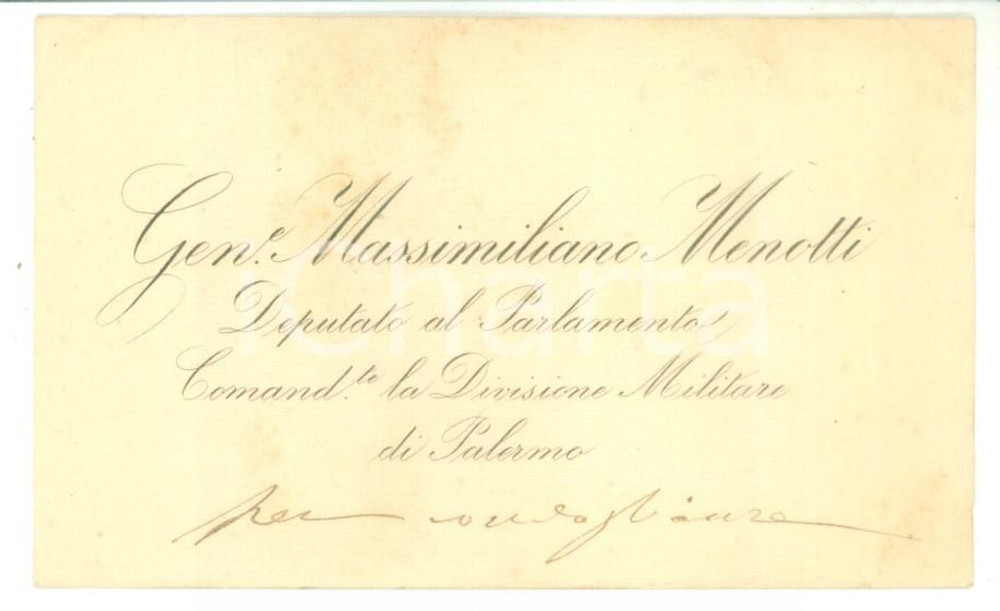 Gen.e Massimiliano Menotti
Deputato al Parlamento
Comand.te la Divisione Militare
di Palermo
per condoglianze
iCharta